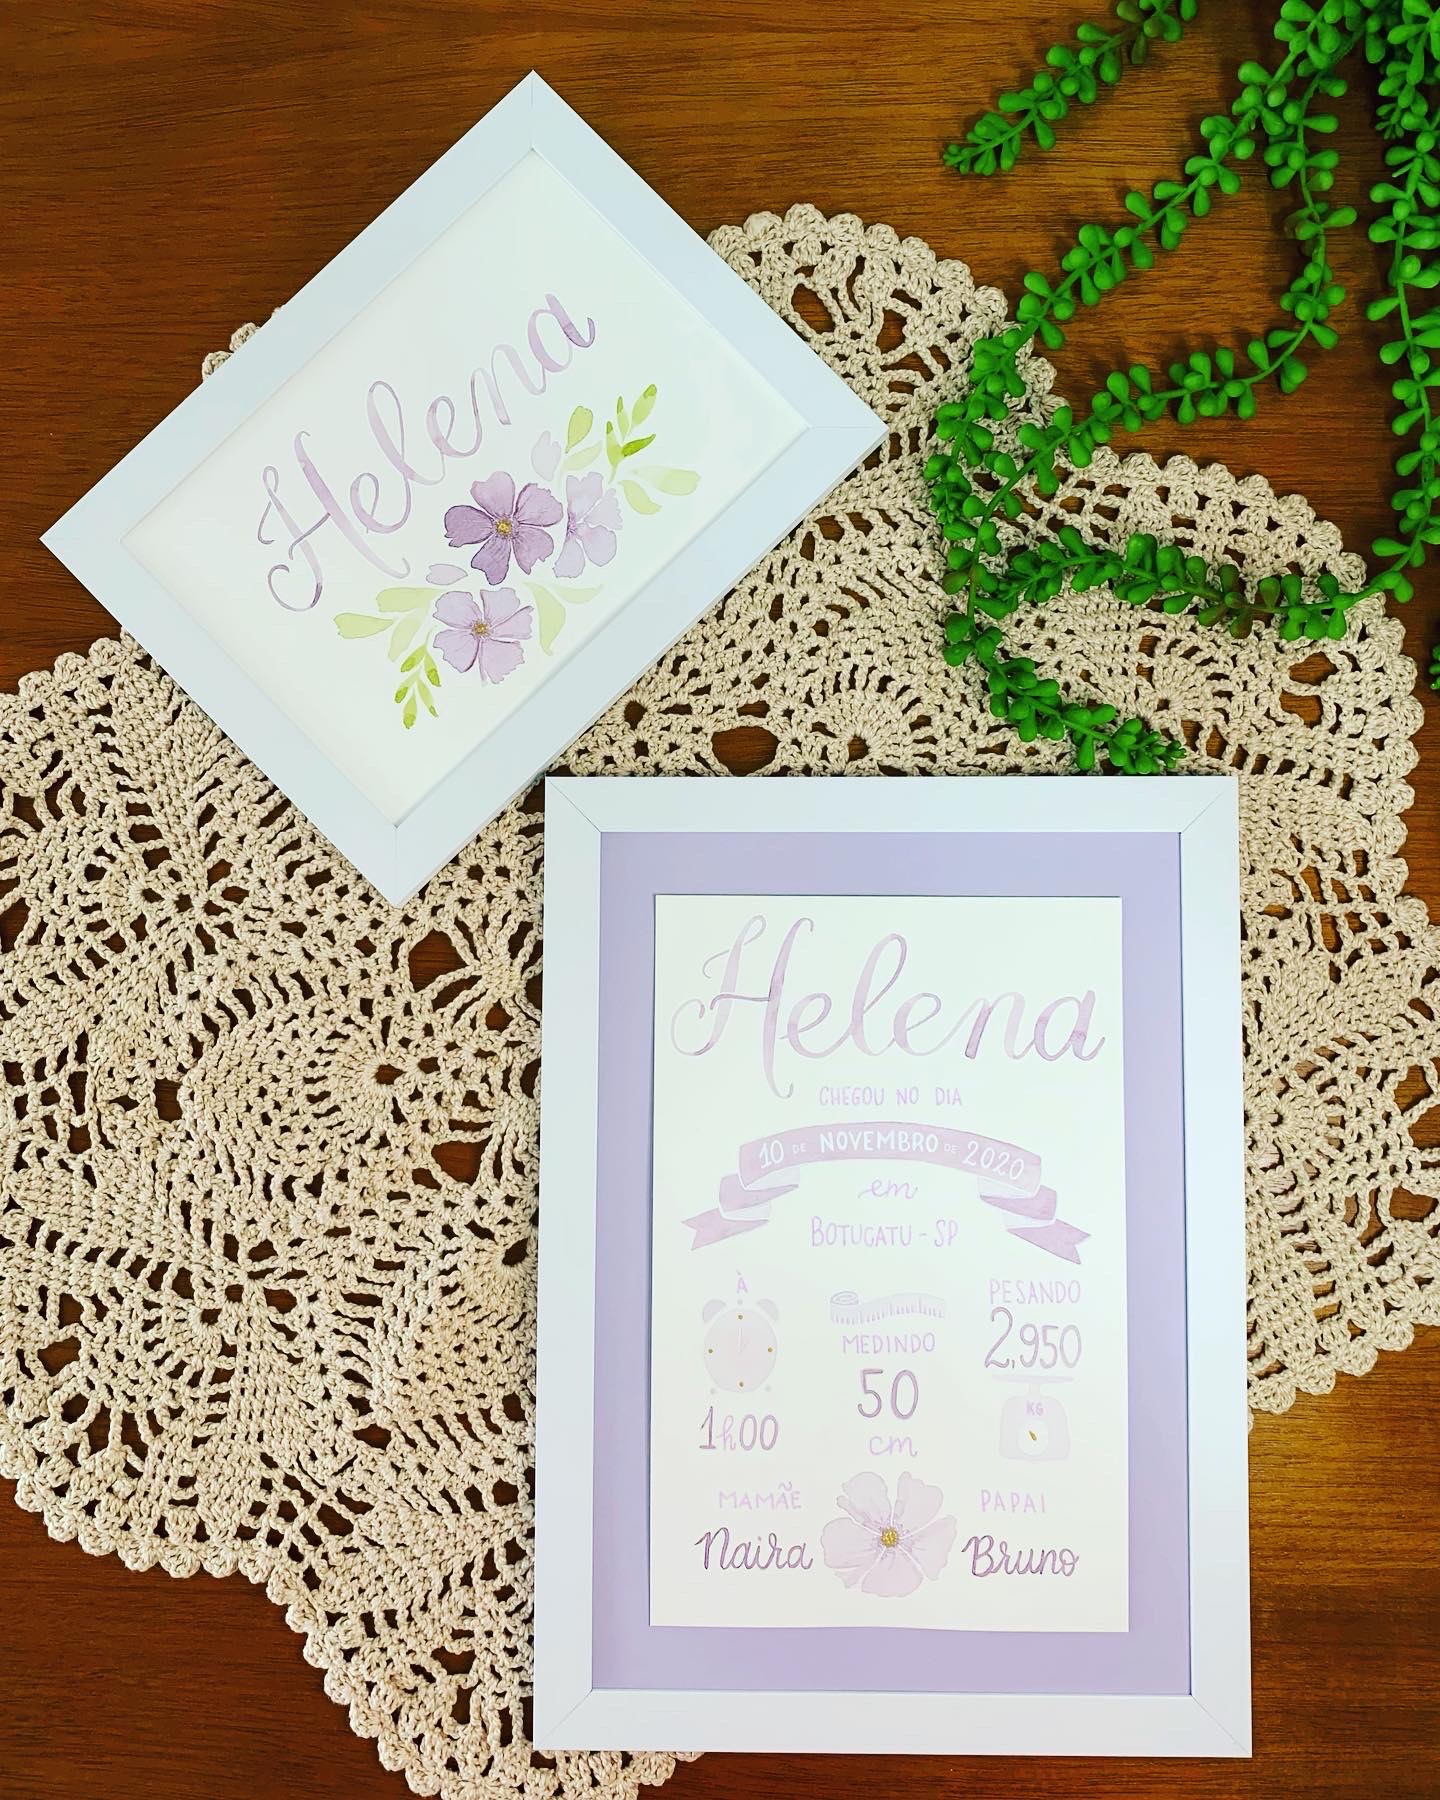 Helena
Helena
CHEGOU NO DIA
10 DE NOVEMBRO DE 2020
em
BOTUCATU - SP
À
1h00
MEDINDO
50
cm
PESANDO
2,950
KG
MAMÃE
Naira
PAPAI
Bruno